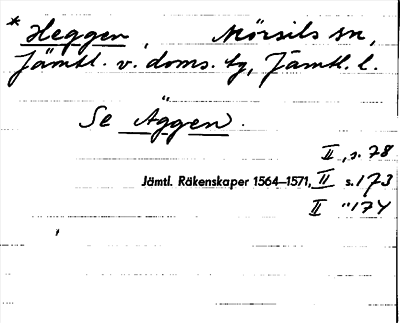 * Heggen, Mörsils sn,
Jämtl. v. doms. tg, Jämtl. l.
Se Äggen.
II, s. 78
Jämtl. Räkenskaper 1564–1571, II s. 173
II " 174